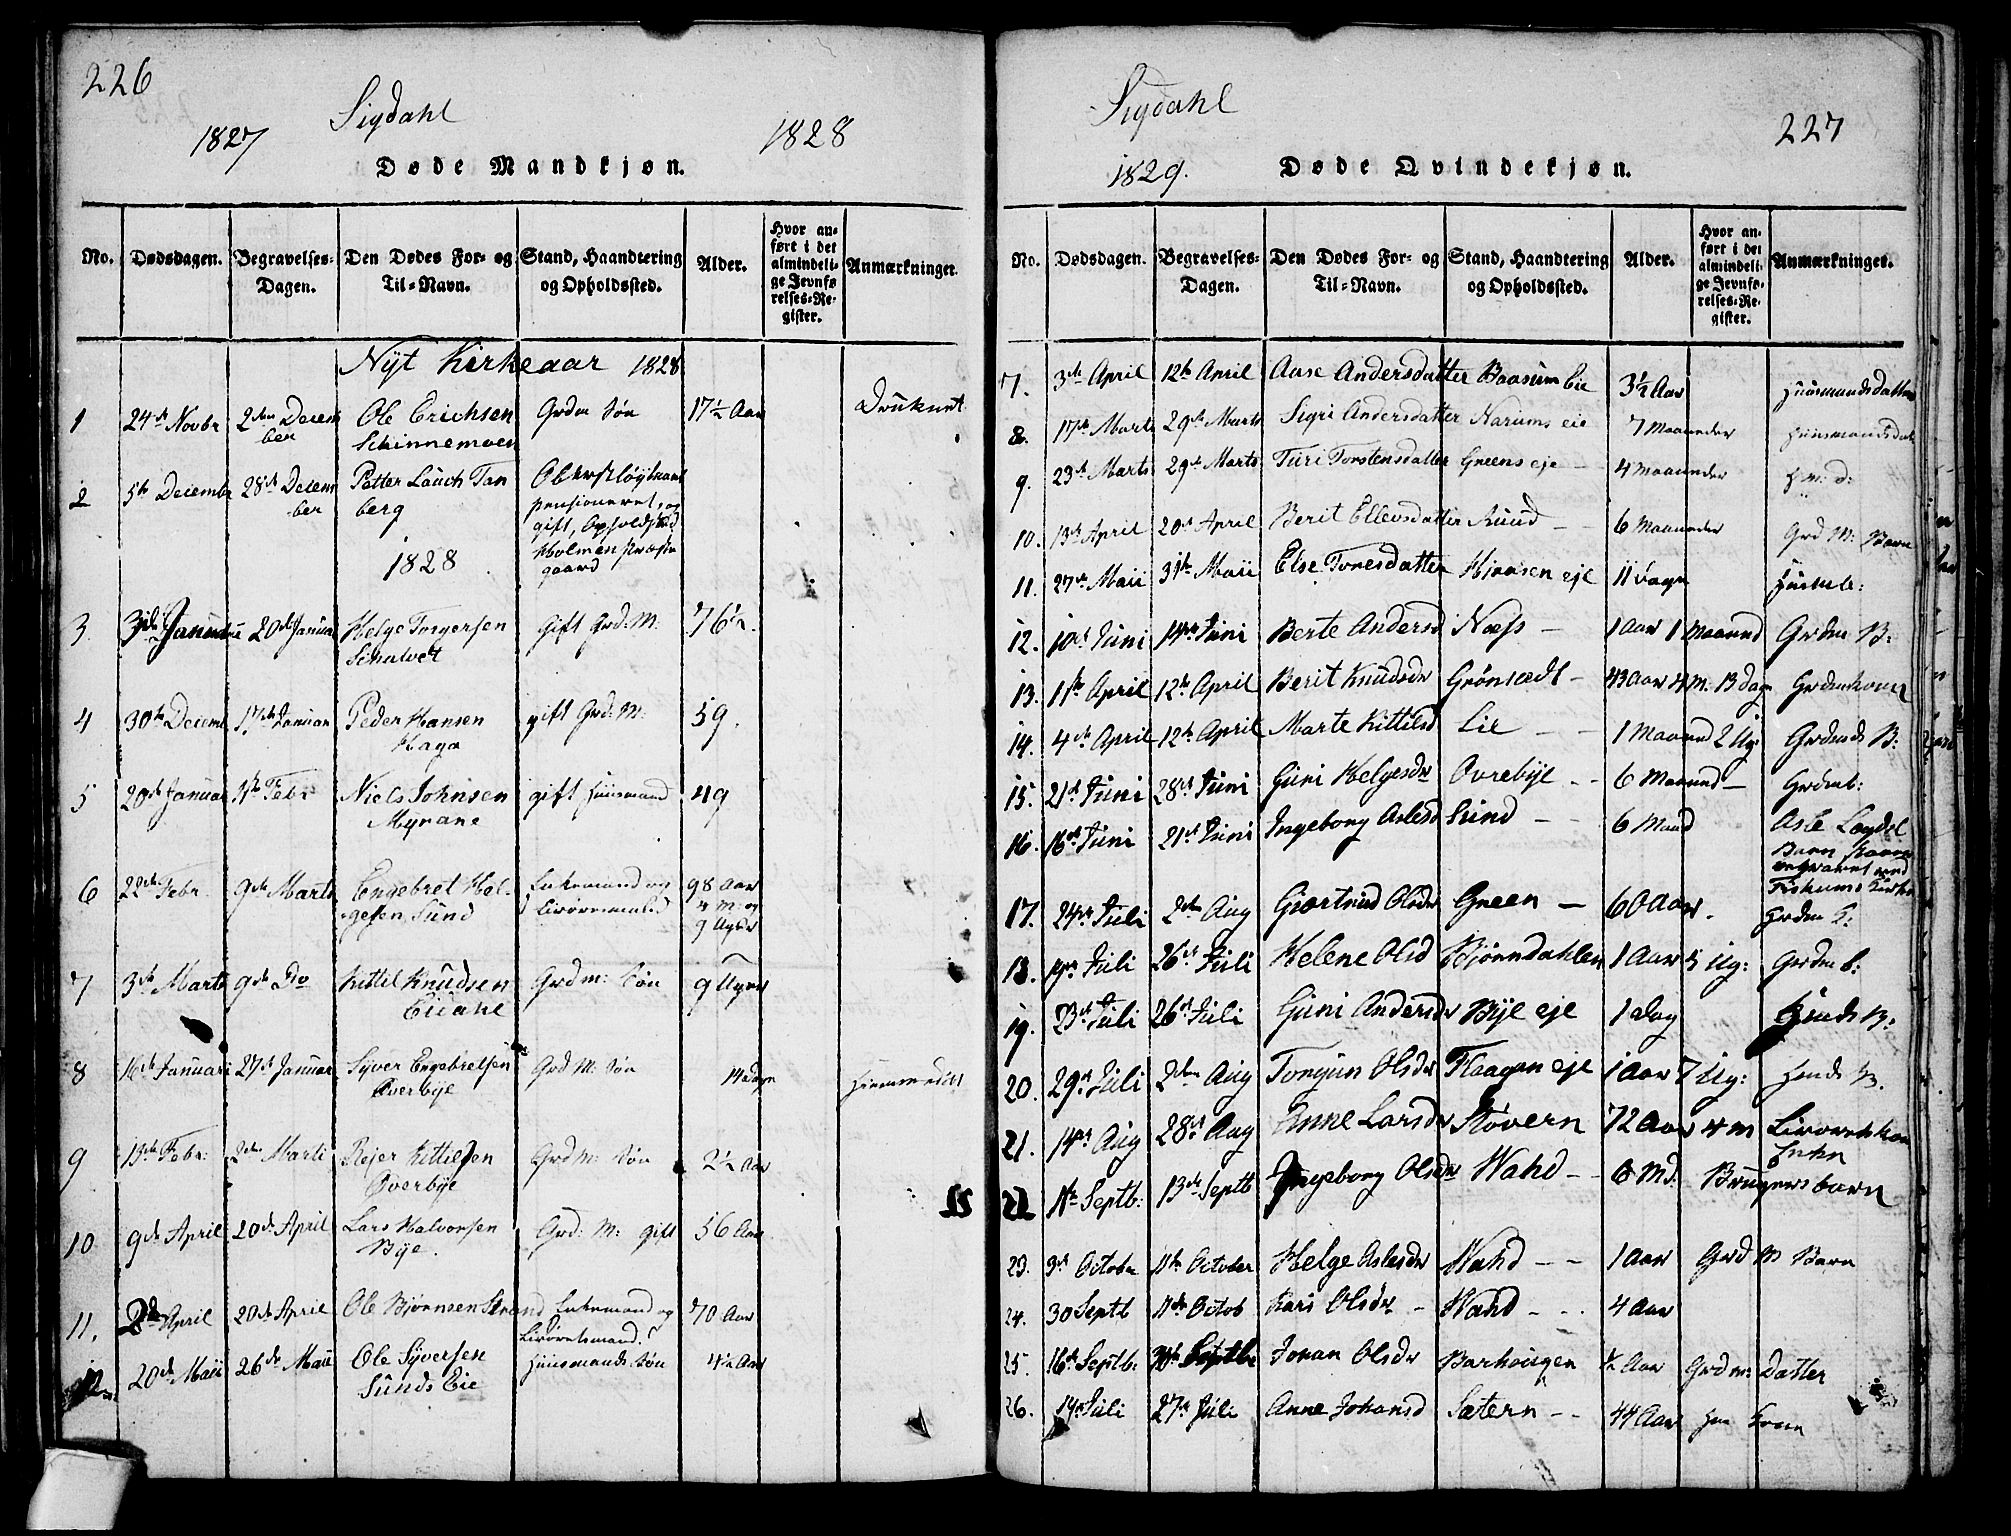 226
Sigdahl
1827
1828
Døde Mandkjøn.
No. Dødsdagen. Begravelses-Dagen. Den Dødes For- og Til-Navn. Stand, Haandtering og Opholdssted. Alder. Hvor anført i det almindelige Jevnførelses-Register. Anmærkninger.
Nyt Kirkeaar 1828
1 24de Novbr 2den Decem Ole Erichsen Grdm Søn 17½ Aar Druknet
ber Schinnemoen
2 5te Decembr 28de Decem Petter Lauch Tan
ber berg
pensioneret, og
gift, Opholdssted
Holmen Præste
gaard
1828
3 20de Januar Helge Torgersen gift Grd: M: 76½
Schalvet
4 30te Decemb 17de Januar Peder Hansen gift Grd: M: 59.
Haga
5 20de Januar Febr Niels Johnsen gift Huusmand 49
Myrane
6 22de Febr 9de Marts Engebret Hel- Enkemand og 98 Aar
gesen Sund 4 M: og
9 Uger
7 3de Marts 9de Do Kittil Knudsen Grdm: Søn 9 Uger
8 16de Januari 27de Januar Syver Engebretsen Grd M: Søn 14 Dage
Overbye
9 13de Febr: 2den Marti Rejer Kittilsen Grd M: Søn 2½ Aar
Overbye
10 9de April 20de April Lars Halvorsen Grd: M: gift 56 Aar
Bye.
11. April 20de April Ole Bjørnsen Strand Enkemand og 70 Aar
20de Maii 26de Maii Ole Syversen Huusmands Søn 4½ Aar
Sunds Eie
Sigdahl
227
1829.
Døde Qvindekjøn.
No. Dødsdagen. Begravelses-Dagen. Den Dødes For- og Til-Navn. Stand, Haandtering og Opholdssted. Alder. Hvor anført i det almindelige Jevnførelses-Register. Anmærkninges.
7. 3de April 12te April Aase Andersdatter Baasum Eie 3½ Aar Huusmandsdatter
8. 17de Marts 29de Marts Sigri Andersdatter Narums eie 7 Maaneder
9. 23de Marts 29de Marts Turi Torstensdatter Greens eje 4 Maaneder H m: d:
10. 13de April 20de April Berit Ellevsdatter Ruud 6 Maaneder Grd M: Barn
11. 27de Maii 31te Maii Else Toresdatter eje 11 Dage
12. 10de Juni 14de Juni Berte Andersd Næss 1 Aar 1 Maaned Grdm B:
13. 11te April 12te April Berit Knudsdr Grønsedt 43 Aar 4 M: 13 Dage Grdmkone
14. 4de April 12te April Marte Kittilsd Lie 1 Maaned 2 Ug: Grdmds B:
15. 21de Juni 28de Juni Guri Helgesdr Ovrebye 6 Maaned Grdmb:
16. 16de Juni 21de Juni Ingeborg Aslesd Sund 6 Maad Asle
Barn
begravet ved
Fiskums Kirke
17. 24de Juli 2den Aug Gjertrud Olsdr Green 60 Aar. Grdm K:
18. 19de Juli 26de Juli Helene Olsd Bjørndahlen 1 Aar 5 Ug: Grdm b:
19. 23de Juli 26de Juli Guri Andersdr Bye eje 1 Dag Hmds B:
20. 29de Juli 2den Aug Torgun Olsdr Haagan eje 1 Aar 7 Ug: Hmds B.
21. 14de Aug 28de Aug Anne Larsdr Støvern 72 Aar 4 m
Enke
22 Septb: 13de Septb Ingeborg Olsdr Wahd 6 Md. Brugers barn
23. 3de Octobr 11te October Helge Aslesdr Wahd 1 Aar Grd M Barn
24. 30 Septb 11te Octob Kari Olsdr Wahd 4 Aar
25. 16de Septb: Septbr Johan Olsdr ½ Aar Grd m: Datter
26. 19de Juli 27de Juli Anne Johansd Sætern 44 Aar Hm Kone